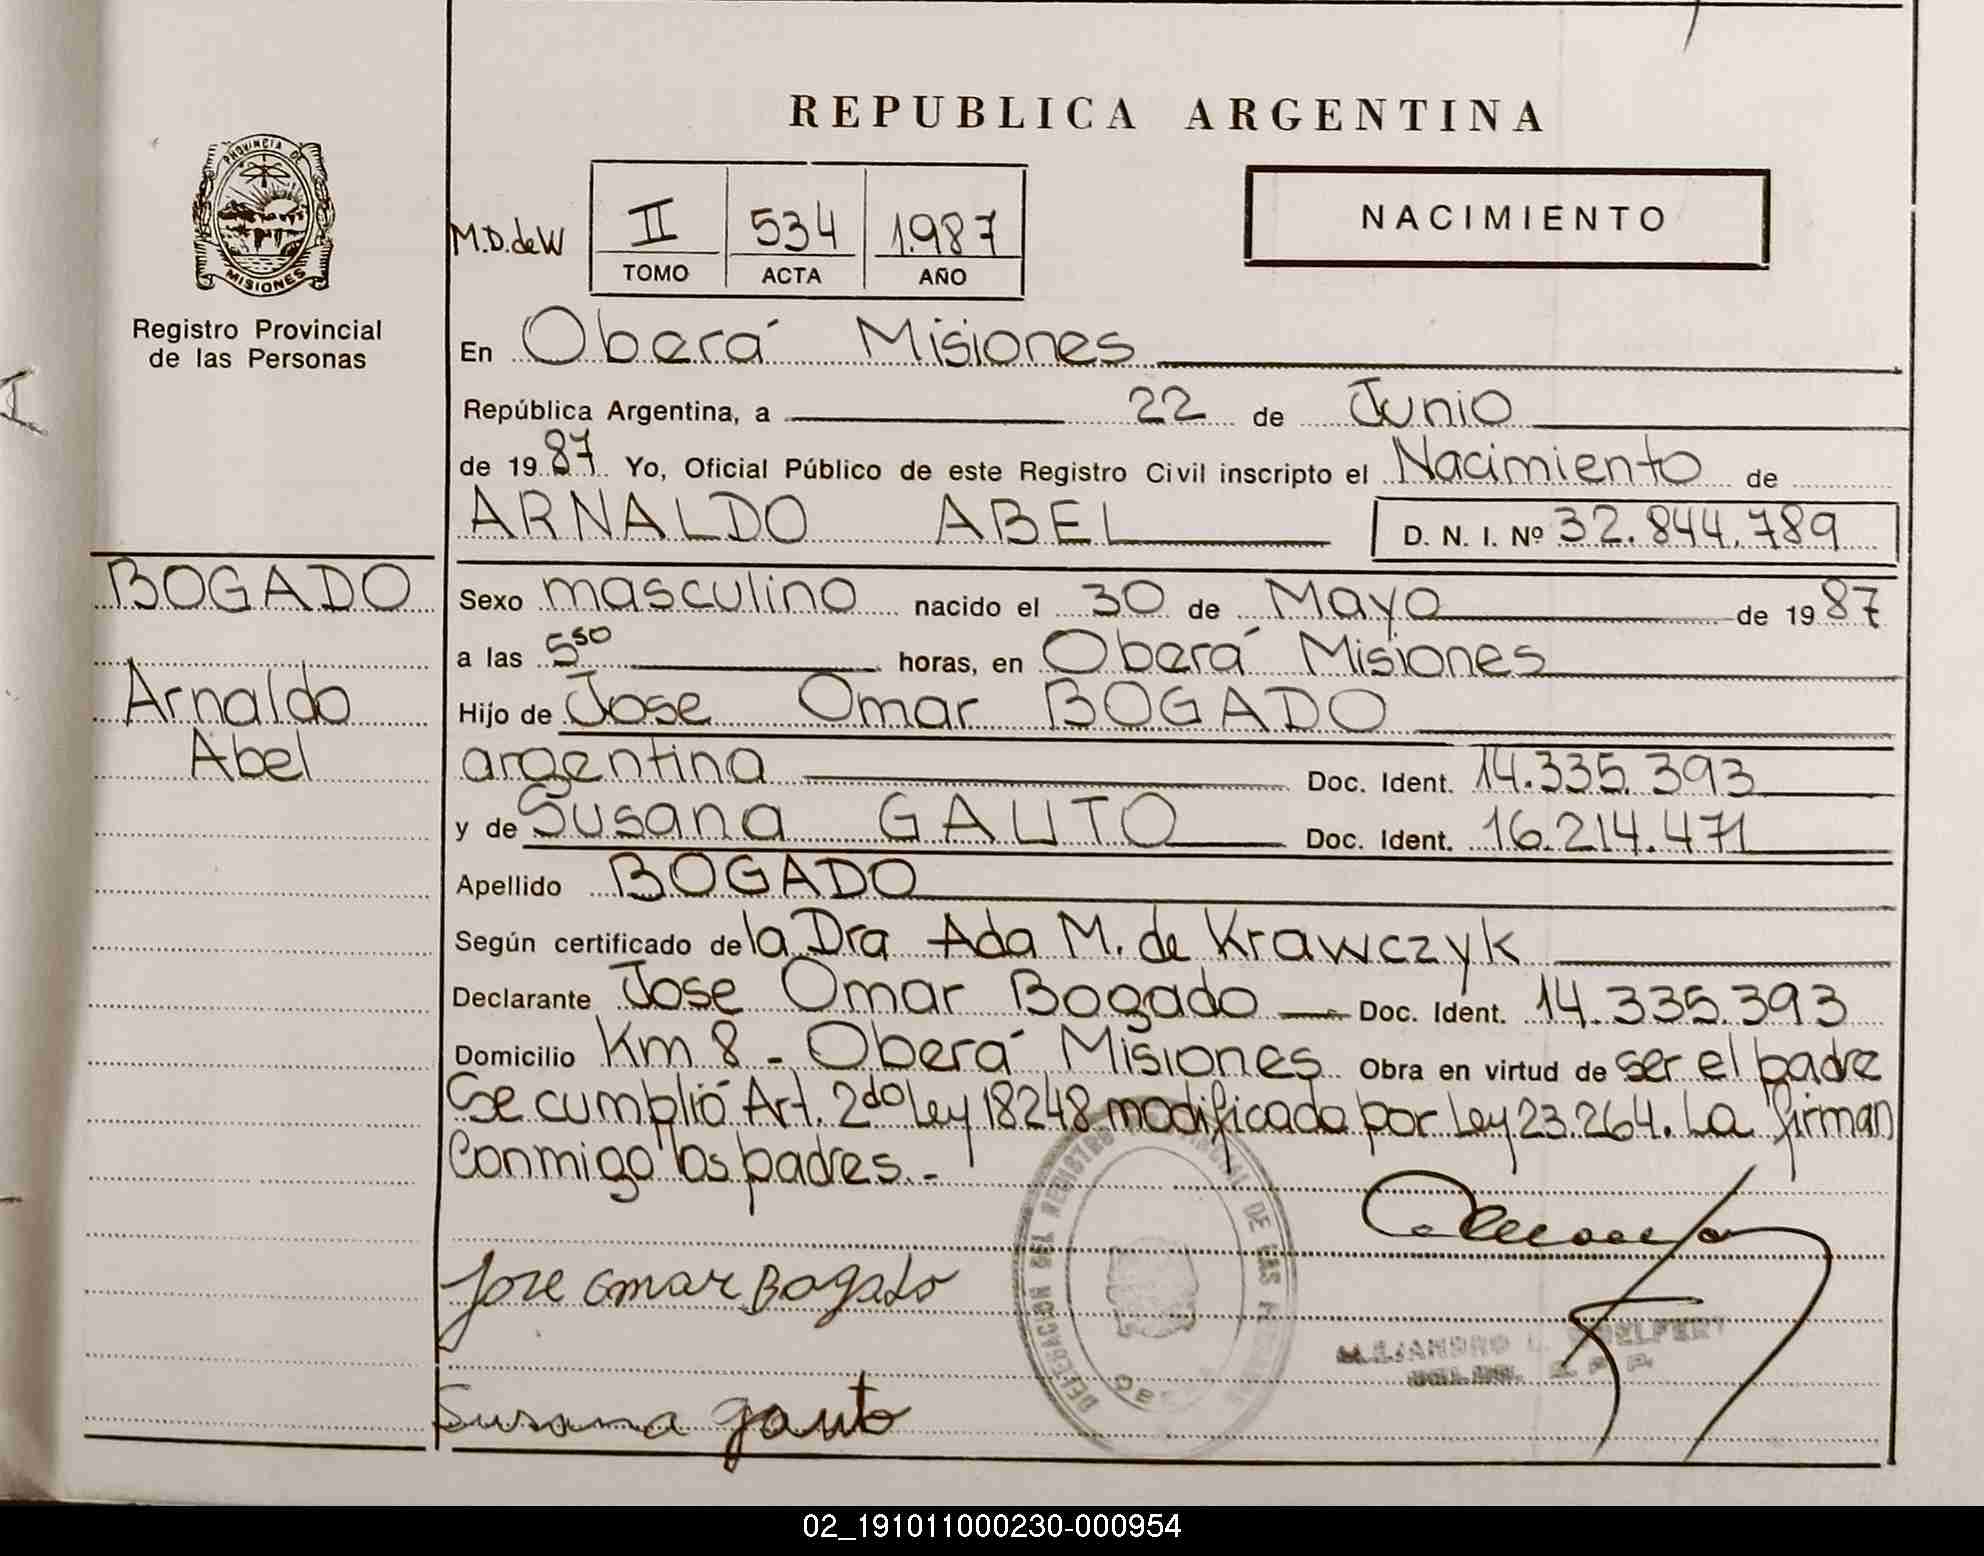 REPUBLICA ARGENTINA
PROVINCIA DE
MISIONES
Registro Provincial
de las Personas
M.D.deW
II 534 1.987
TOMO ACTA AÑO
NACIMIENTO
En Oberá Misiones
República Argentina, a 22 de Junio
de 19 87 Yo, Oficial Público de este Registro Civil inscripto el Nacimiento de
ARNALDO ABEL D. N. I. Nº 32.844.789
BOGADO
Arnaldo
Abel
Sexo masculino nacido el 30 de Mayo de 19 87
a las 5 50 horas, en Oberá Misiones
Hijo de Jose Omar BOGADO
argentina Doc. Ident. 14.335.393
y de Susana GAUTO Doc. Ident. 16.214.471
Apellido BOGADO
Según certificado de la Dra Ada M. de Krawczyk
Declarante Jose Omar Bogado Doc. Ident. 14.335.393
Domicilio Km 8 - Oberá Misiones Obra en virtud de ser el padre
Se cumplió Art. 2do Ley 18248 modificada por Ley 23.264. La firman
Conmigo los padres.-
DELEGACION DEL REGISTRO PROVINCIAL DE LAS
Jose Omar Bogado
ALEJANDRO
Susana Gauto
02_191011000230-000954